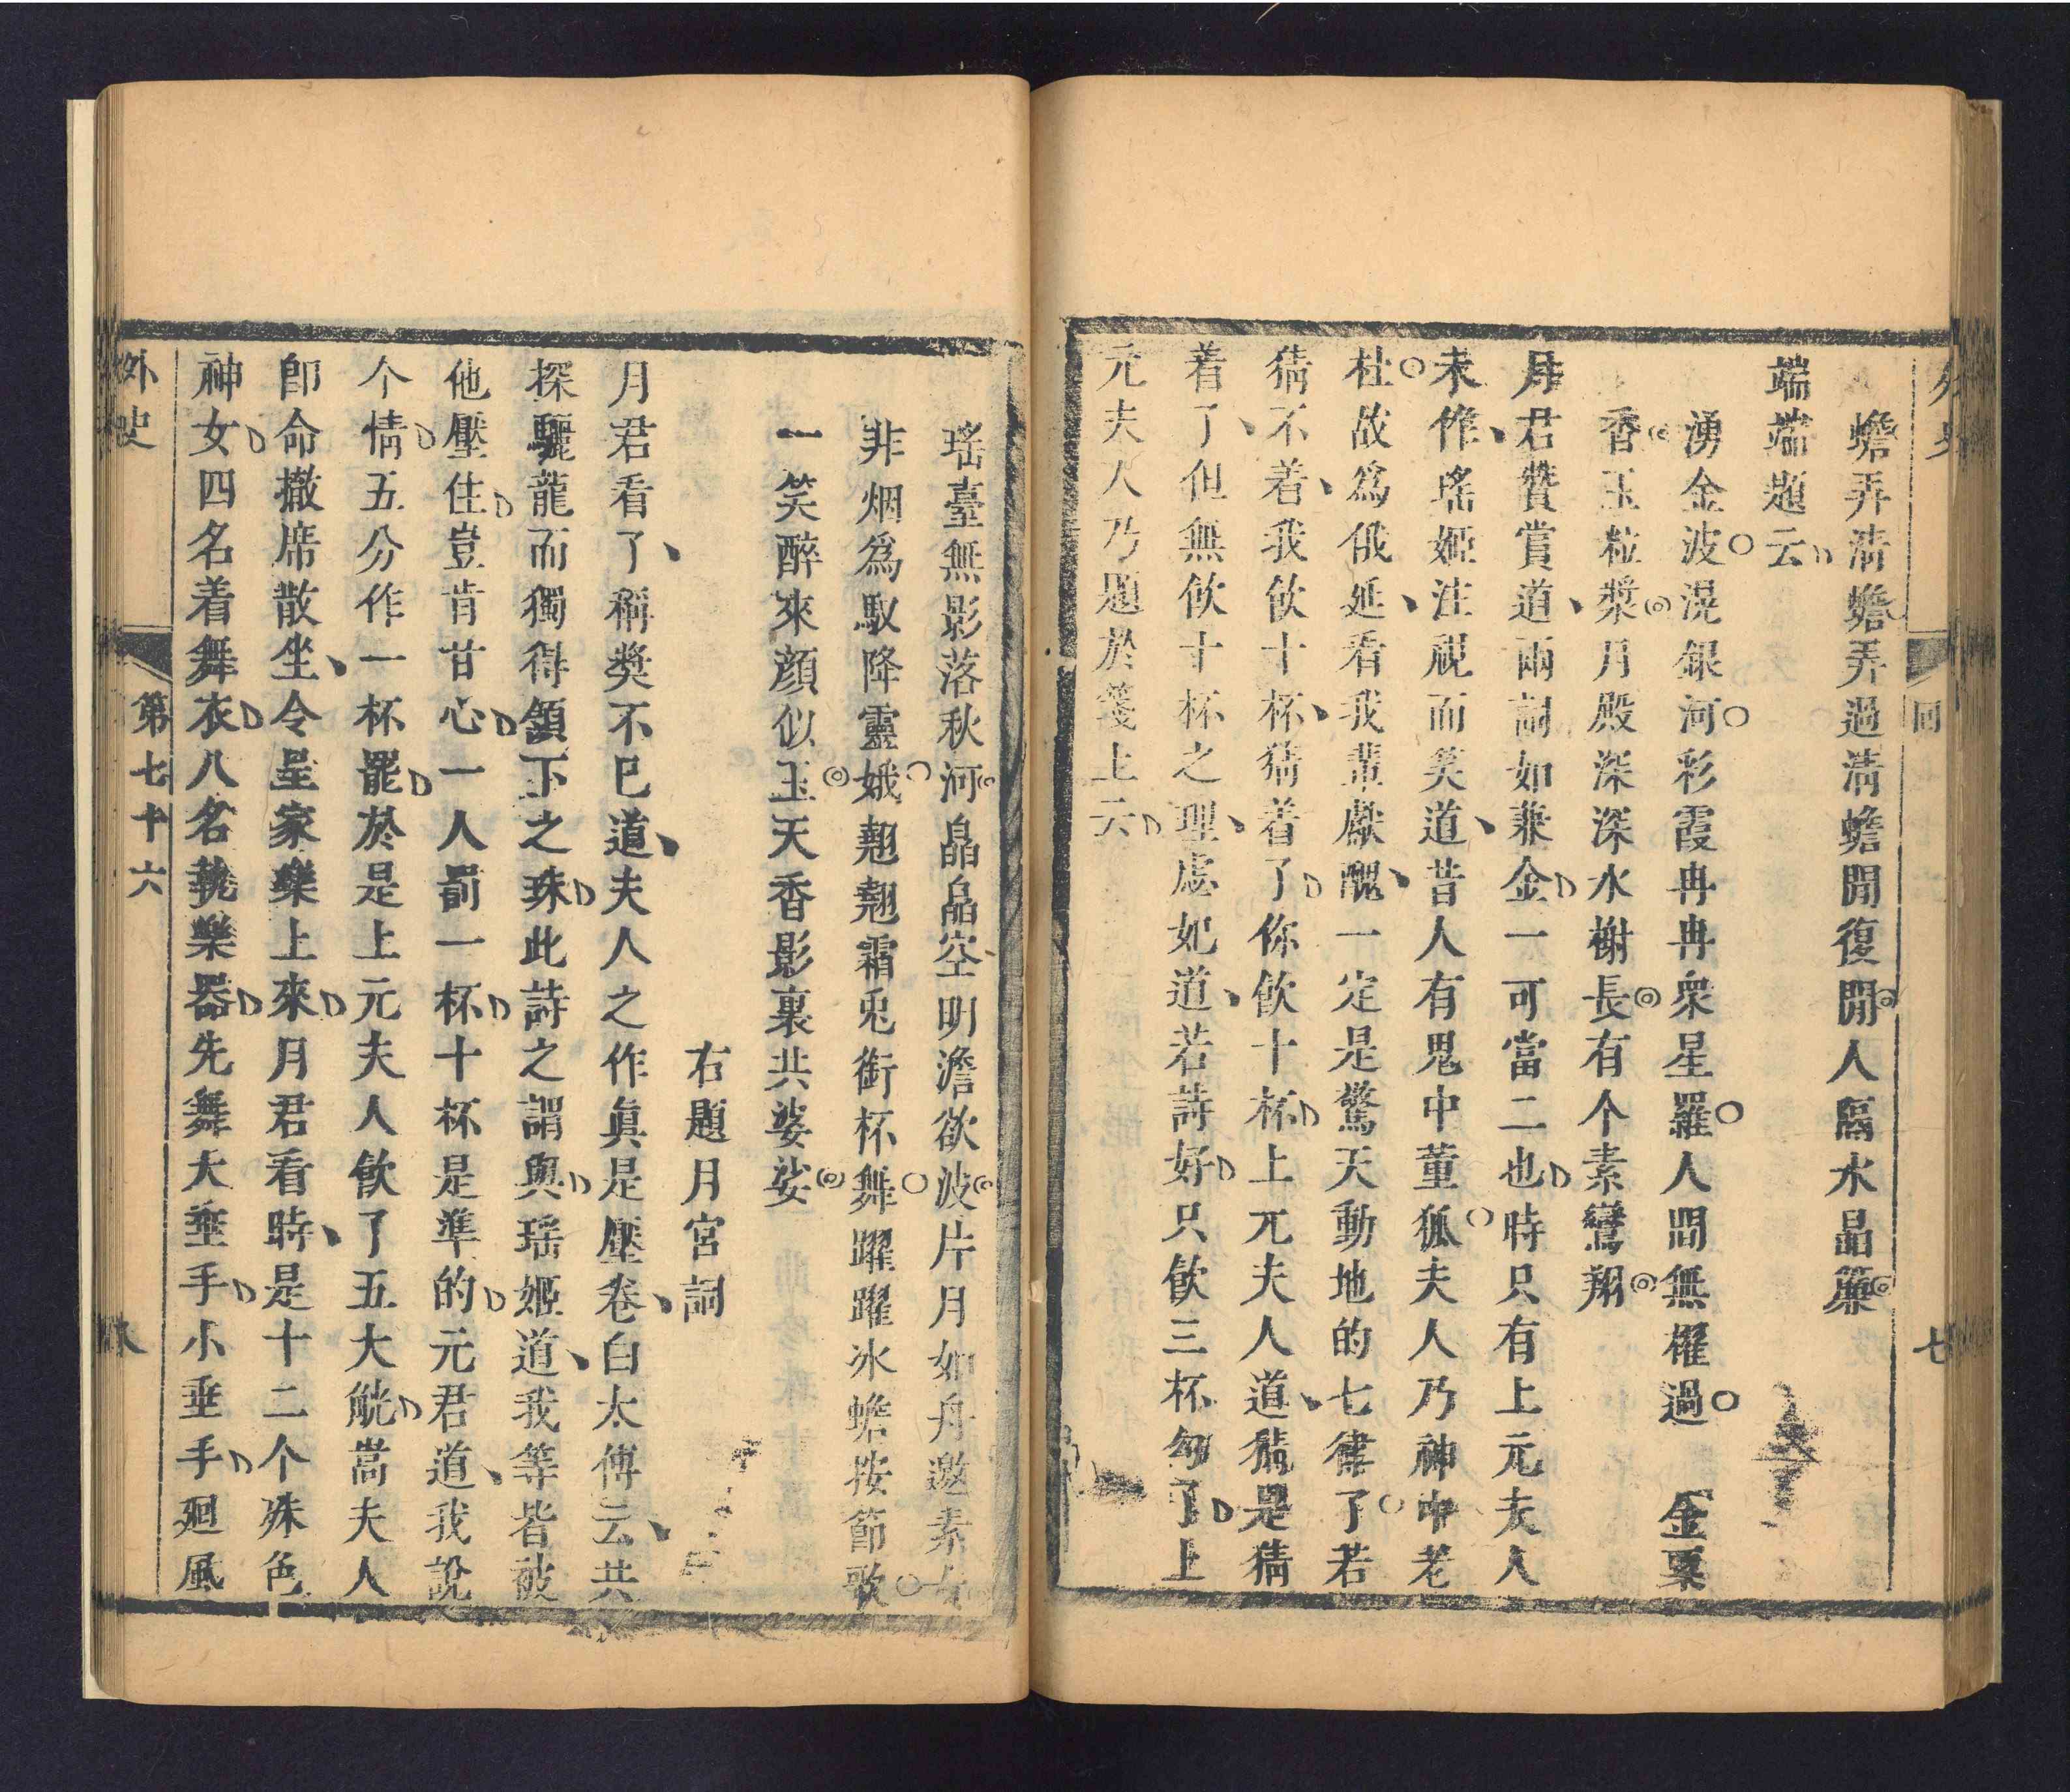 外史
回
七
蟾弄清蟾弄過清蟾閒復閒人隔水晶簾
端端題云
湧金波滉銀河彩霞冉冉衆星羅人間無櫂過　金粟
香玉粒漿月殿深深水榭長有个素鸞翔
月君贊賞道兩詞如兼金一可當二也時只有上元夫人
未作瑤姬注視而笑道昔人有鬼中董狐夫人乃神中老
杜故爲俄延看我輩獻醜一定是驚天動地的七律了若
猜不着我飲十杯猜着了你飲十杯上元夫人道猜是猜
着了但無飲十杯之理處妃道若詩好只飲三杯勾了上
元夫人乃題於箋上云
瑤臺無影落秋河皛皛空明澹欲波片月如舟邀素女
非烟爲馭降靈娥翹翹霜兎銜杯舞躍躍冰蟾按節歌
一笑醉來顔似玉天香影裏共婆娑
右題月宮詞
月君看了稱奬不已道夫人之作眞是壓卷白太傅云共
探驪龍而獨得頷下之珠此詩之謂與瑤姬道我等皆被
他壓住豈肯甘心一人罰一杯十杯是準的元君道我說
个情五分作一杯罷於是上元夫人飲了五大觥嵩夫人
卽命撤席散坐令呈家樂上來月君看時是十二个殊色
神女四名着舞衣八名執樂器先舞大垂手小垂手廻風
外史
第七十六
八